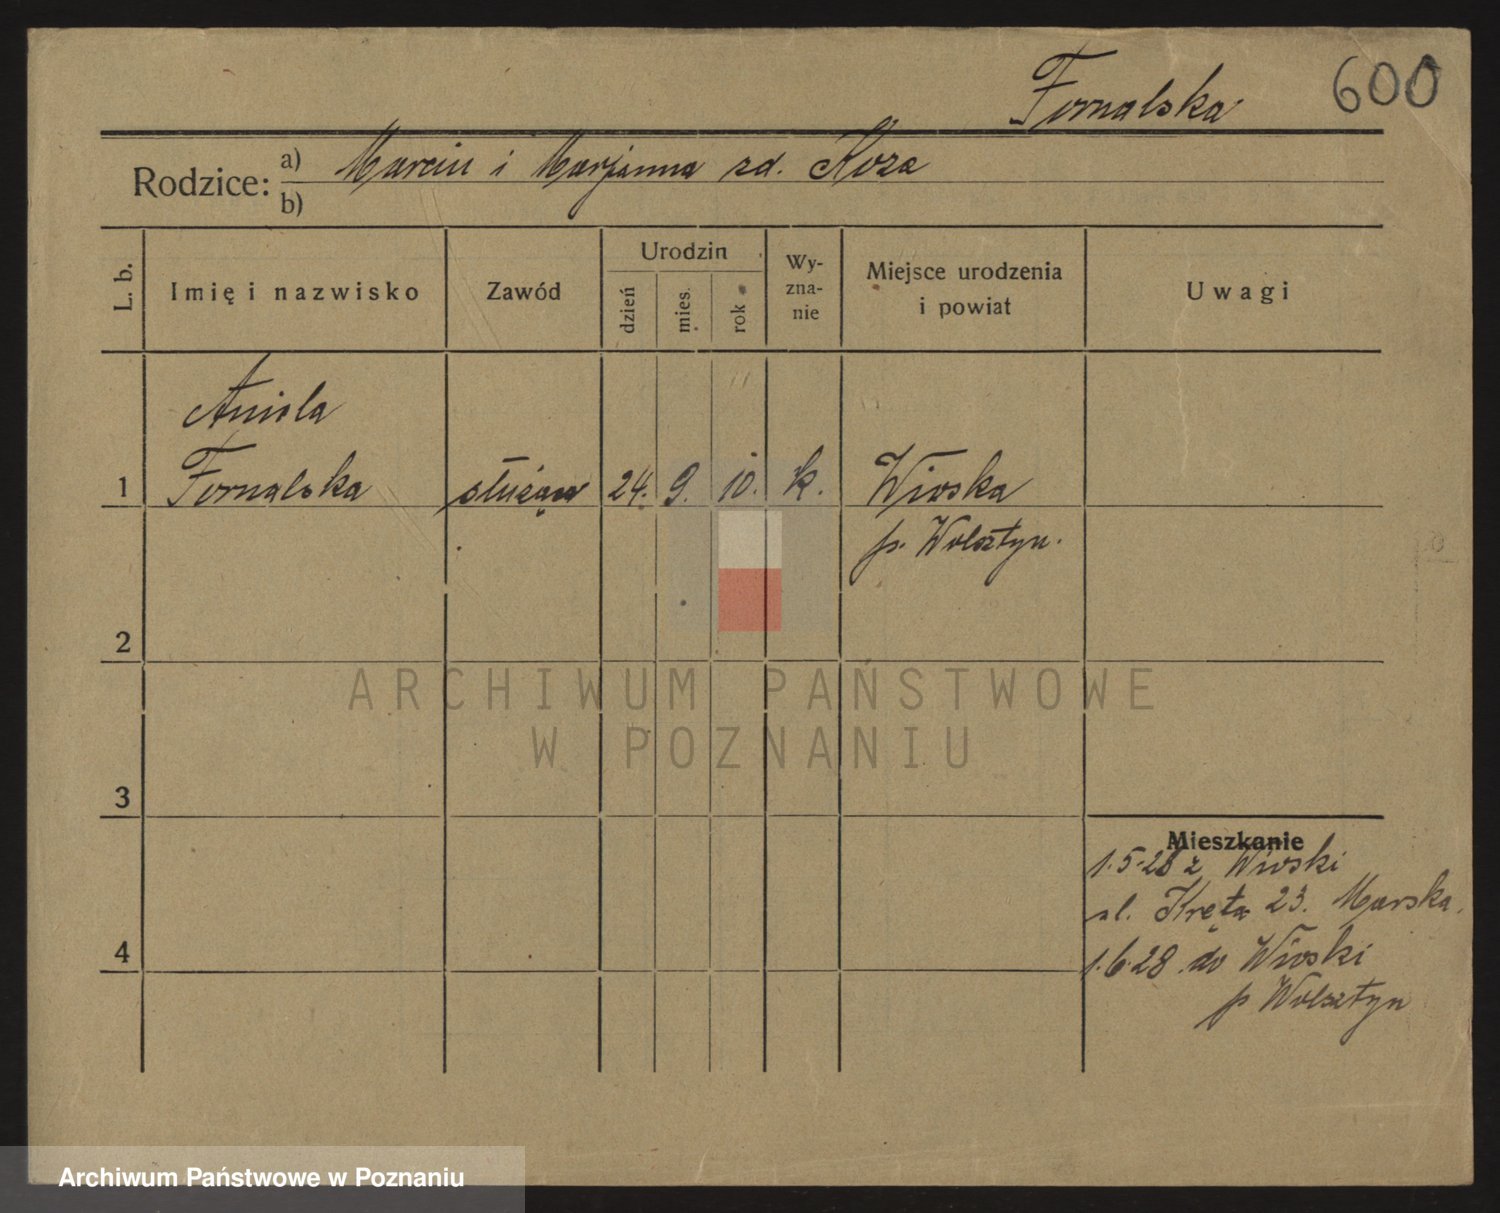 Fornalska
600
Rodzice:
a) Marcin i Marjanna zd. Koza
b)
L. b.
Imię i nazwisko
Zawód
Urodzin
dzień
mies.
rok
Wy-
zna-
nie
Miejsce urodzenia
i powiat
Uwagi
Aniela
1 Fornalska służąca 24. 9. 10. k. Wioska
p. Wolsztyn.
2
ARCHIWUM PAŃSTWOWE
W POZNANIU
3
Mieszkanie
1.5.28 z Wioski
ul. Kręta 23. Marska.
4
1.6.28 do Wioski
p Wolsztyn
Archiwum Państwowe w Poznaniu